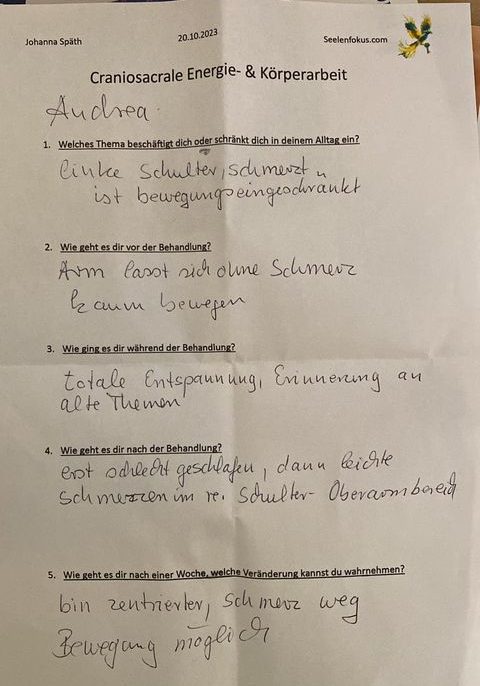 Johanna Späth
20.10.2023
Seelenfokus.com
Craniosacrale Energie- & Körperarbeit
Andrea
1. Welches Thema beschäftigt dich oder schränkt dich in deinem Alltag ein?
linke Schulter, schmerzt u
ist bewegungseingeschränkt
2. Wie geht es dir vor der Behandlung?
Arm lässt sich ohne Schmerz
kaum bewegen
3. Wie ging es dir während der Behandlung?
totale Entspannung, Erinnerung an
alte Themen
4. Wie geht es dir nach der Behandlung?
erst schlecht geschlafen, dann leichte
Schmerzen im re. Schulter- Oberarmbereich
5. Wie geht es dir nach einer Woche, welche Veränderung kannst du wahrnehmen?
bin zentrierter, Schmerz weg
Bewegung möglich